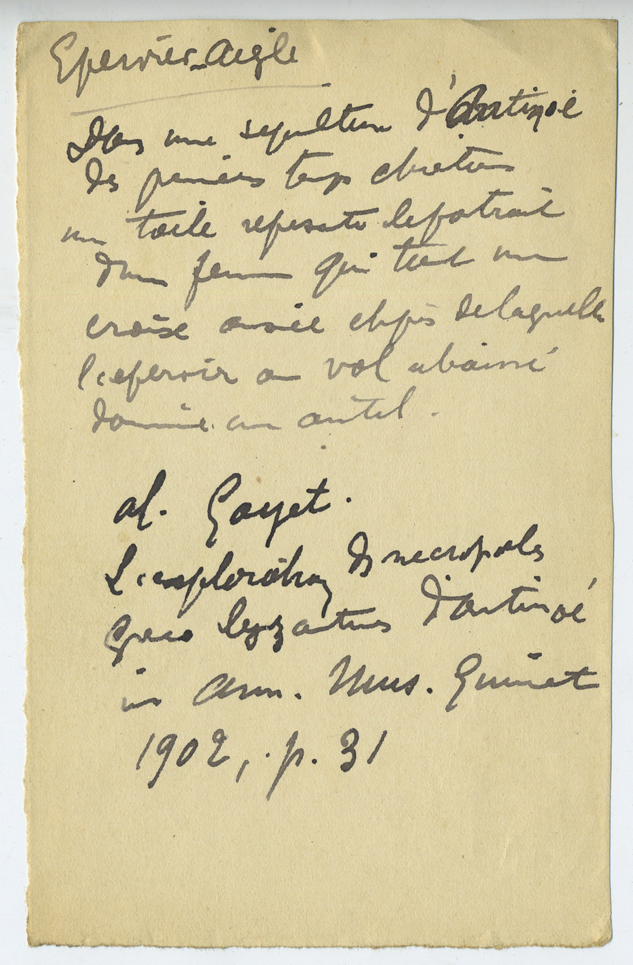 Epervier-aigle
Dans une sepulture d'Antinoé
des premiers temps chrétiens
une toile represente le portrait
d'une femme qui tient une
croise ansée de laquelle
l'epervier au vol abaissé
domine un autel.
al. Gayet.
L'exploration des necropoles
greco byzantines d'antinoé
in ann. Mus. Guimet
1902, p. 31